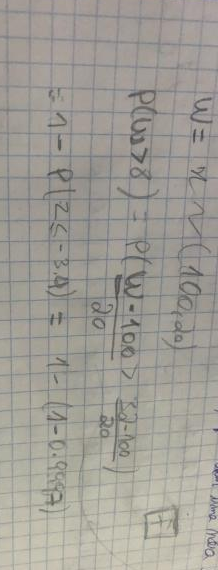 W = x N (100,20)
P(W > 8) = P( W-100 / 20 > 32-100 / 20 )
= 1 - P(Z ≤ -3.4) = 1 - (1-0.9997)
F